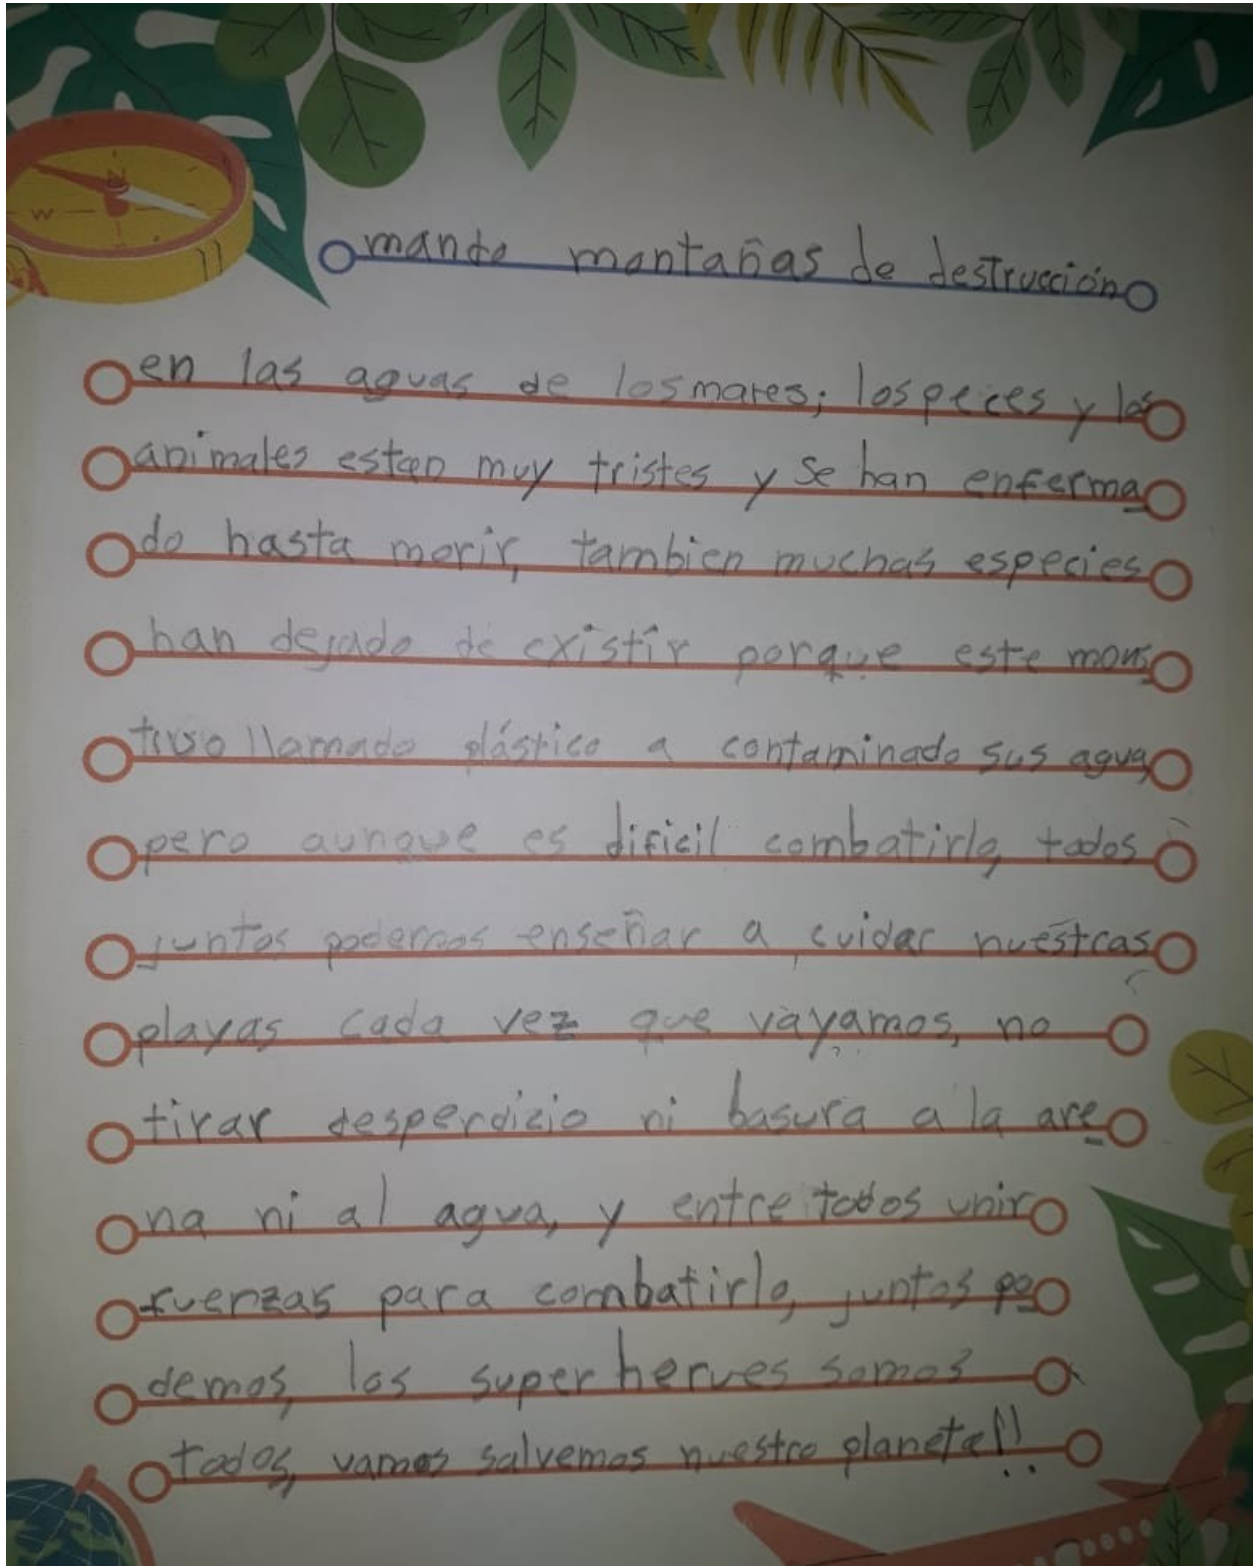 mando montañas de destrucción
en las aguas de los mares; los peces y los
animales estan muy tristes y se han enferma
do hasta morir, tambien muchas especies
han dejado de existir porque este mons
truo llamado plástico a contaminado sus agua,
pero aunque es dificil combatirlo, todos
juntos podemos enseñar a cuidar nuestras
playas cada vez que vayamos, no
tirar desperdizio ni basura a la are
na ni al agua, y entre todos unir
fuerzas para combatirlo, juntos po
demos, los super herues somos
todos, vamos salvemos nuestro planeta!!
W
N